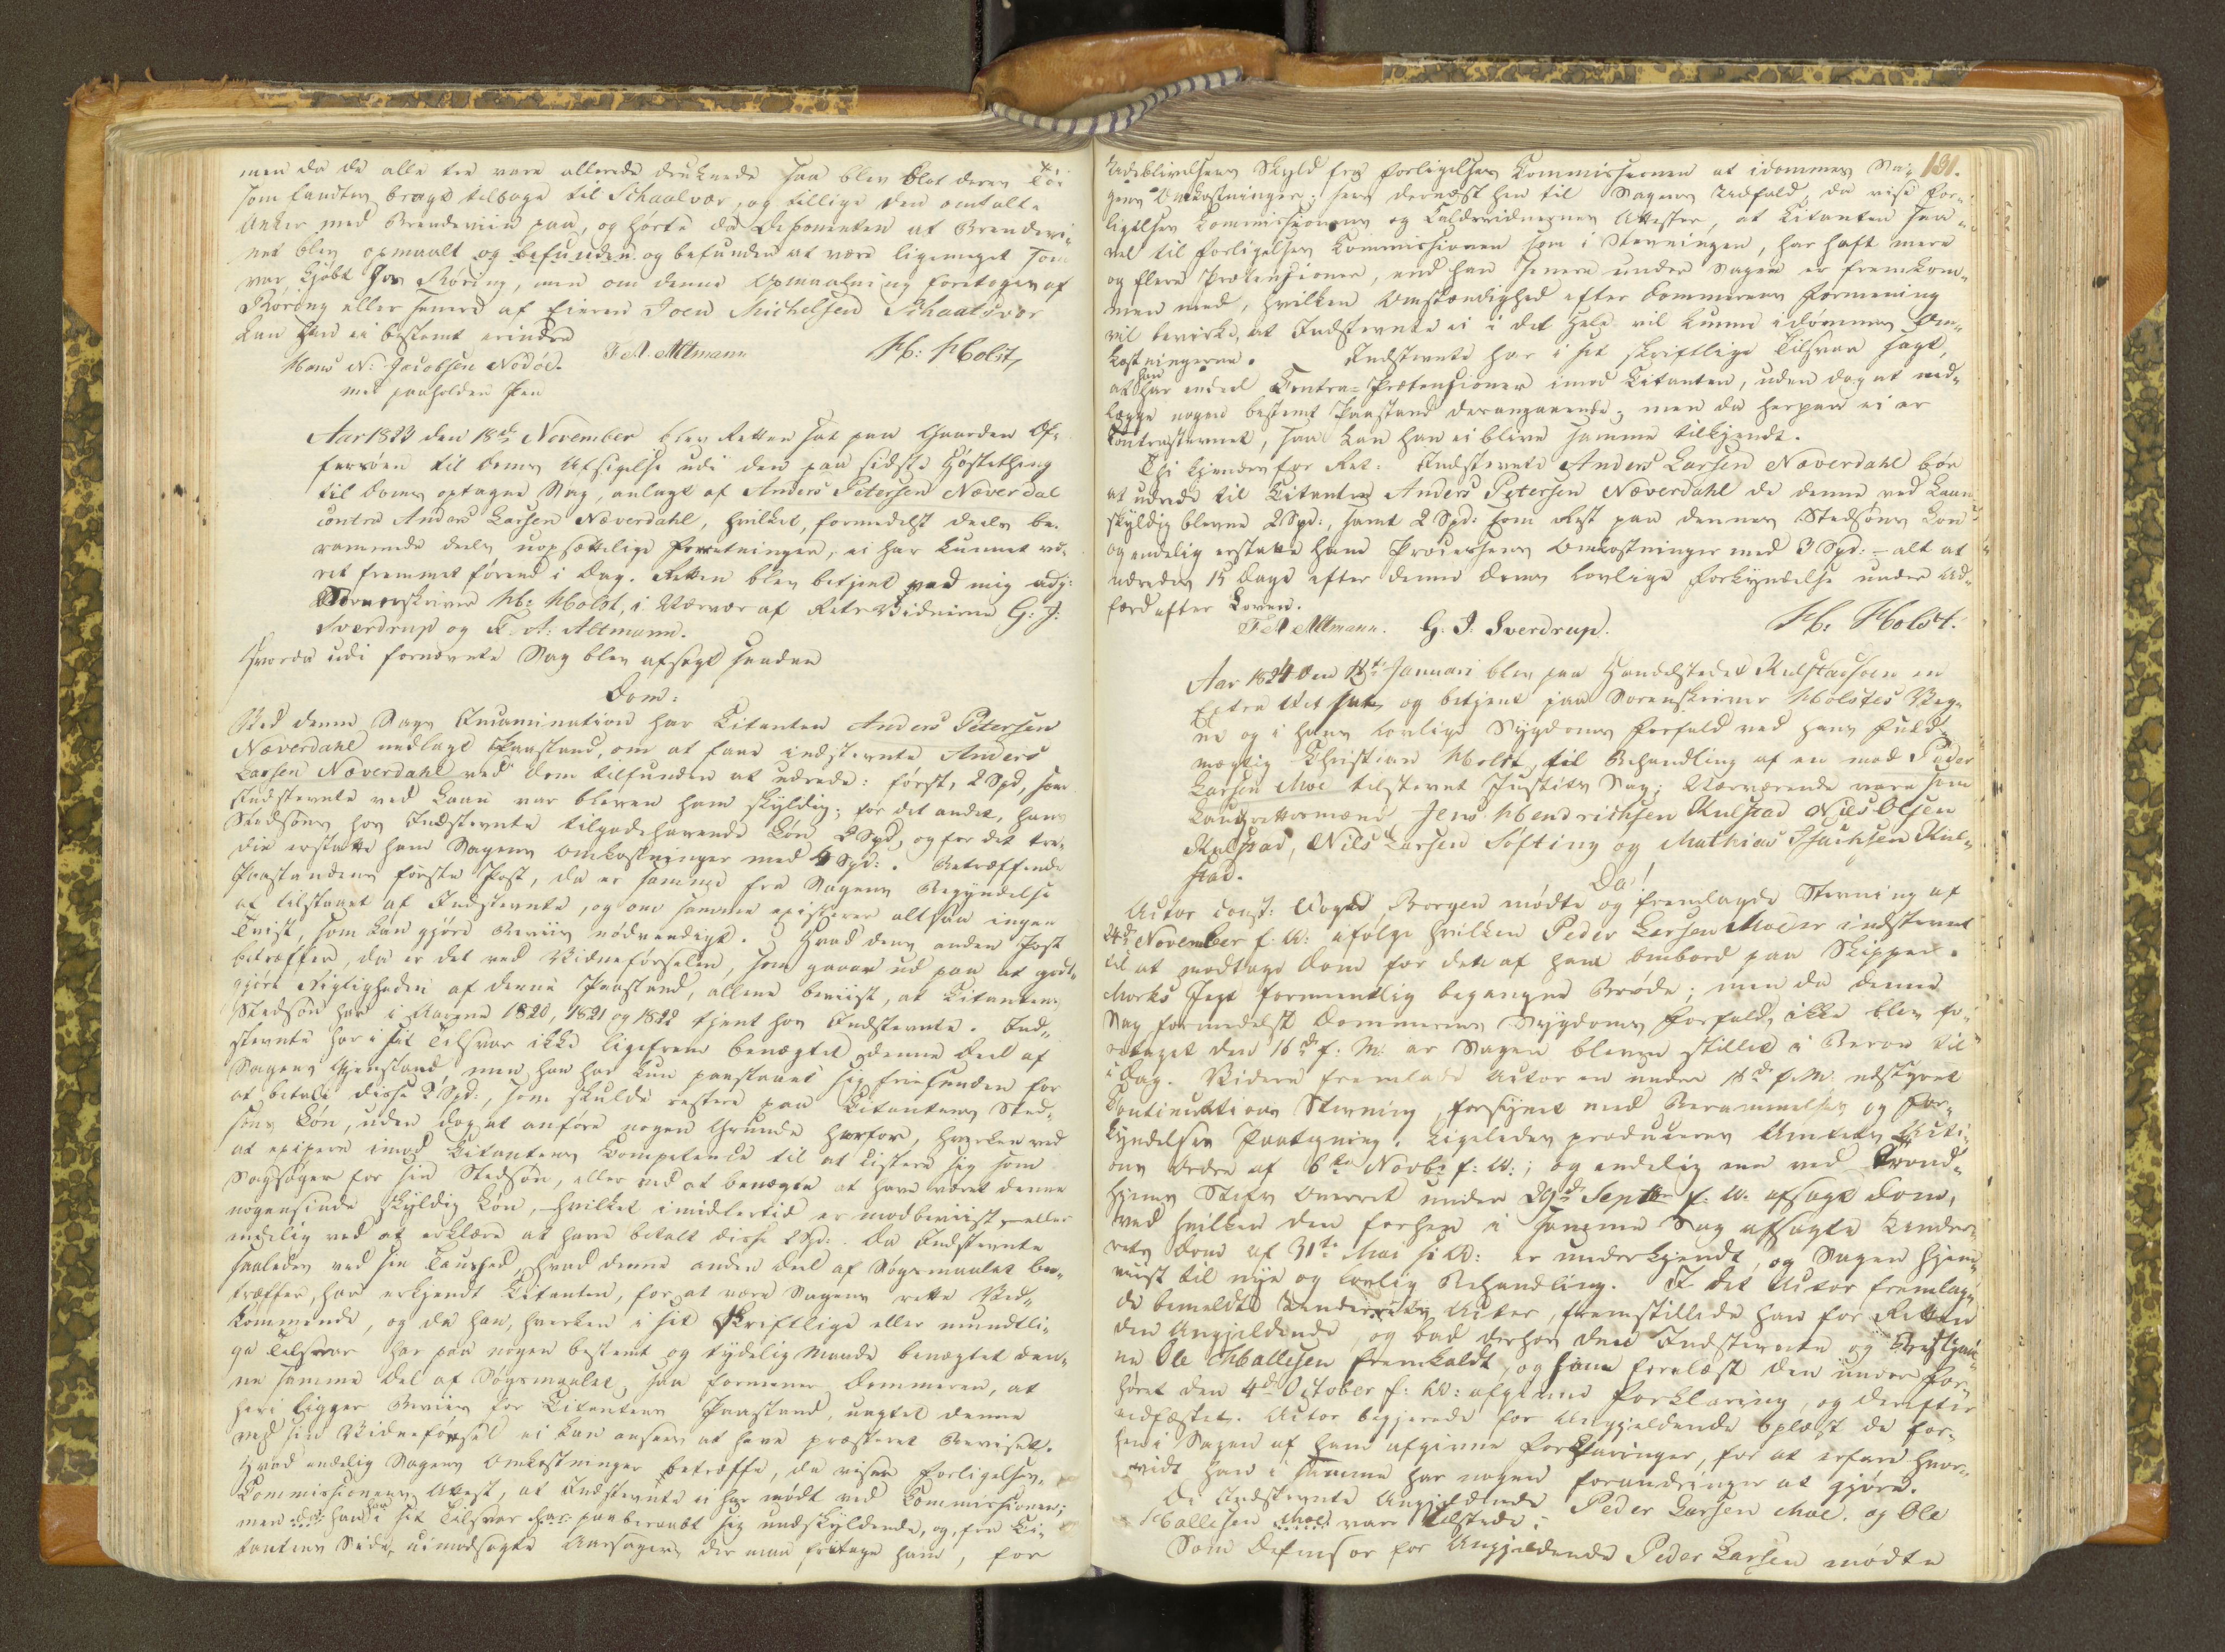 men da de alle tre vare allerede druknede saa blev blot deres Tøi
som landtes bragt tilbage til Schaalvær, og tillige den omtalte
Anker med Brendeviin paa, og hørte da Deponenten at Brendevi-
net blev opmaalt og befunden og befunden at være ligemeget som
var kjøbt hos Røring, men om denne Opmaaling foretoges af
Røring eller senere af Eieren Joen Michelsen Schaalsvær
kan han ei bestemt erindre
F A Altmann H: Holst,
Hans N: Jacobsen Nodøe.
med paaholden Pen
Aar 1823 den 18de November blev Retten sat paa Gaarden Of-
fersøen til Doms Afsigelse udi den paa sidste Høstething
til Doms optagne Sag, anlagt af Anders Petersen Næverdal
contra Anders Larsen Næverdahl, hvilket, formedelst deels be-
rammede deels uopsættelige Forretninger, ei har kunnet væ-
ret fremmet førend i Dag. Retten blev betjent ved mig adj:
Sorenskriver H: Holst, i Nærvær af Rets Vidnerne G: J:
Sverdrup og F. A: Altmann.
Hvorda udi fornævnte Sag blev afsagt saadan
Dom:
Ved denne Sags Incamination har Citanten Anders Petersen
Næverdahl nedlagt Paastand, om at faae indstevnte Anders
Larsen Næverdahl ved Dom tilfunden at udrede: først, 2 Spd, som
Indstevnte ved Laan var bleven ham skyldig; for det andet, hans
Stedsøns hos Indstevnte tilgodehavende Løn 2 Spd, og for det tre-
die erstatte ham Sagens Omkostninger med 4 Spd:. Betræffende
Paastandens første Post, da er samme fra Sagens Begyndelse
af tilstaaet af Indstevnte, og om samme existerer altsaa ingen
Tvist, som kan gjøre Beviis nødvendigt. Hvad dens anden Post
betræffer, da er det ved Vidneførselen, som gaaer ud paa at godt-
gjøre Rigtigheden af denne Paastand, allene beviist, at Citantens
Stedsøn har i Aarene 1820, 1821 og 1822 tjent hos Indstevnte. Ind-
stevnte har i sit Tilsvar ikke ligefrem benægtet denne Deel af
Sagens Gjenstand men han har kun paastaaet sig frifunden for
at betale disse 2 Spd:, som skulde restere paa Citantens Sted-
søns Løn, uden dog at anføre nogen Grunde herfor, hverken ved
at exipere imod Citantens Competence til at listere sig som
Sagsøger for sin Stedsøn, eller ved at benægte at have været denne
nogensinde skyldig Løn, hvilket imidlertid er modbeviist, eller
endelig ved at erklære at have betalt disse 2 Spd:. Da Indstevnte
saaledes ved sin Taushed, hvad denne anden Deel af Søgsmaalet be-
træffer, har erkjendt Citanten, for at være Sagens rette Ved-
kommende, og da han, hverken i sit skriftlige eller mundtli-
ge Tilsvar har paa nogen bestemt og tydelig Maade benægtet den-
ne samme Del af Søgsmaalet, saa formener Dommeren, at
heri ligger Beviis for Citantens Paastand, uagtet denne
ved sin Vidneførsel ei kan ansees at have præsteret Beviset.
Hvad endelig Sagens Omkostninger betræffe, da viser Forligelses-
Commissionens Attest, at Indstevnte ei har mødt ved Commissionen;
men da han i sit Tilsvar har paaberaabt sig undskyldende, og fra Ci-
tantens Side, uimodsagte Aarsager, der maa fritage ham, for
131.
Udeblivelsens Skyld fra Forligelses Commissionen at idømmes Sa-
gens Omkostninger; sees dernæst hen til Sagens Udfald, da vise For-
ligelses Commissionens og Kaldsvidnernes Attester, at Citanten saa-
vel til Forligelses Commissionen som i Stevningen, har haft mere
og flere Prætensioner, end han senere under Sagen er fremkom-
men med, hvilken Omstændighed efter Dommerens Formening
vil bevirke, at Indstevnte ei i det Hele vil kunne idømmes Om-
kostningerne. Indstevnte har i sit skriftlige Tilsvar sagt,
at han har endeel Contra-Prætensioner imod Citanten, uden dog at ned-
lægge nogen bestemt Paastand derangaaende; men da herpaa ei er
Contrastevnet, saa kan han ei blive samme tilkjendt.
Thi kjendes for Ret: Indstevnte Anders Larsen Næverdahl bør
at udrede til Citanten Anders Petersen Næverdahl de denne ved Laan
skyldig blevne 2 Spd:, samt 2 Spd: som Rest paa dennes Stedsøns Løn
og endelig erstatte ham Processens Omkostninger med 3 Spd: – alt at
udredes 15 Dage efter denne Doms lovlige Forkyndelse under Ad-
færd efter Loven.
F A Altmann. G. J. Sverdrup. H: Holst.
Aar 1824 den Januari blev paa Handelstedet Rulstadsøen en
Extra Ret sat og betjent paa Sorenskriver Holstes Veg-
ne og i hans lovlige Sygdoms Forfald ved hans Fuld-
mægtig Christian Holst, til Behandling af en mod Peder
Larsen Moe tilstevnt Justits Sag; Nærværende vare som
Laugrettesmænd Jens Hendrichsen Kulstad Niels Olsen
Kulstad, Niels Larsen Søfting og Mathias Isachsen Kul-
stad.
Da!
Actor const: Foged Borgen mødte og fremlagde Stevning af
24de November f: A: ifølge hvilken Peder Larsen Moe er indstevnt
til at modtage Dom for det af ham ombord paa Skipper
Morks Jegt formeentlig begangne Brøde; men da denne
Sag formedelst Dommerens Sygdoms Forfald, ikke blev fo-
retaget den 16de f: M: er Sagen bleven stillet i Beroe til
i Dag. Videre fremlagde Actor en under 16de f. M. udstædt
Continuations Stevning, forsynet med Berammelses og For-
kyndelses Paategning. Ligeledes producerer Amtets Acti-
ons Ordre af 6te Novbr f: A:; og endelig en ved Trond-
hjems Stifts Overret under 29de Septbr f: A: afsagt Dom,
ved hvilken den forhen i samme Sag afsagte Under-
rets Dom af 31te Mai s: A: er underkjendt, og Sagen hjem-
viist til nye og lovlig Behandling. I det Actor fremlag-
de bemeldte Underrets Acter, fremstillede han for Retten
den Angjeldende, og bad derhos den Indstevnte og
Ole Hallesen fremkaldt, og ham forelæst den under For-
høret den 4de October f: A: afgivne Forklaring, og derefter
edfæstet. Actor begjerede for Angjeldende oplæst de for-
hen i Sagen af ham afgivne Forklaringer, for at erfare hvor-
vidt han i samme har nogen Forandringer at gjøre.
De Indstevnte Angjeldende Peder Larsen Moe, og Ole
Hallesen Moe vare tilstede;
Som Defensor for Angjeldende Peder Larsen mødte